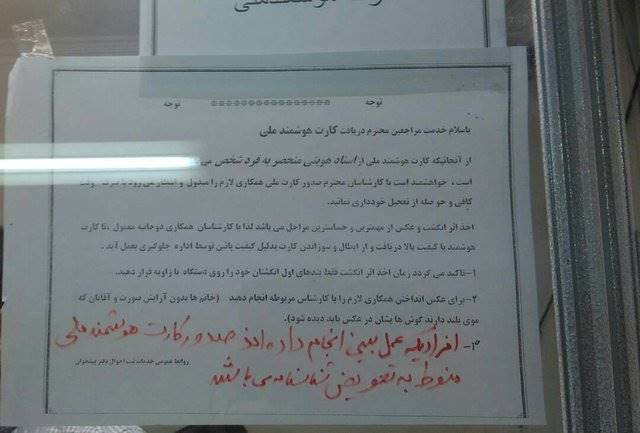 توجه **************** توجه
باسلام خدمت مراجعین محترم دریافت کارت هوشمند ملی
از آنجائیکه کارت هوشمند ملی از اسناد هویتی منحصر به فرد شخص می
است ، خواهشمند است با کارشناسان محترم صدور کارت ملی همکاری لازم را مبذول و انتظار می رود با صرف وقت
کافی و حوصله از تعجیل خودداری نمائید.
اخذ اثر انگشت و عکس از مهمترین و حساسترین مراحل می باشد لذا با کارشناسان همکاری دوجانبه معمول ،تا کارت
هوشمند با کیفیت بالا دریافت و از ابطال و سوزاندن کارت بدلیل کیفیت پائین توسط اداره جلوگیری بعمل آید .
۱-تاکید می گردد زمان اخذ اثر انگشت فقط بندهای اول انگشتان خود را روی دستگاه با زاویه قرار دهید.
۲-برای عکس انداختن همکاری لازم را با کارشناس مربوطه انجام دهید (خانم ها بدون آرایش صورت و آقایان که
موی بلند دارند گوش ها یشان در عکس باید دیده شود).
۳- افرادیکه عمل بینی انجام داده اند صدور کارت هوشمند ملی
منوط به تعویض شناسنامه می باشد
روابط عمومی خدمات ثبت احوال دفتر پیشخوان